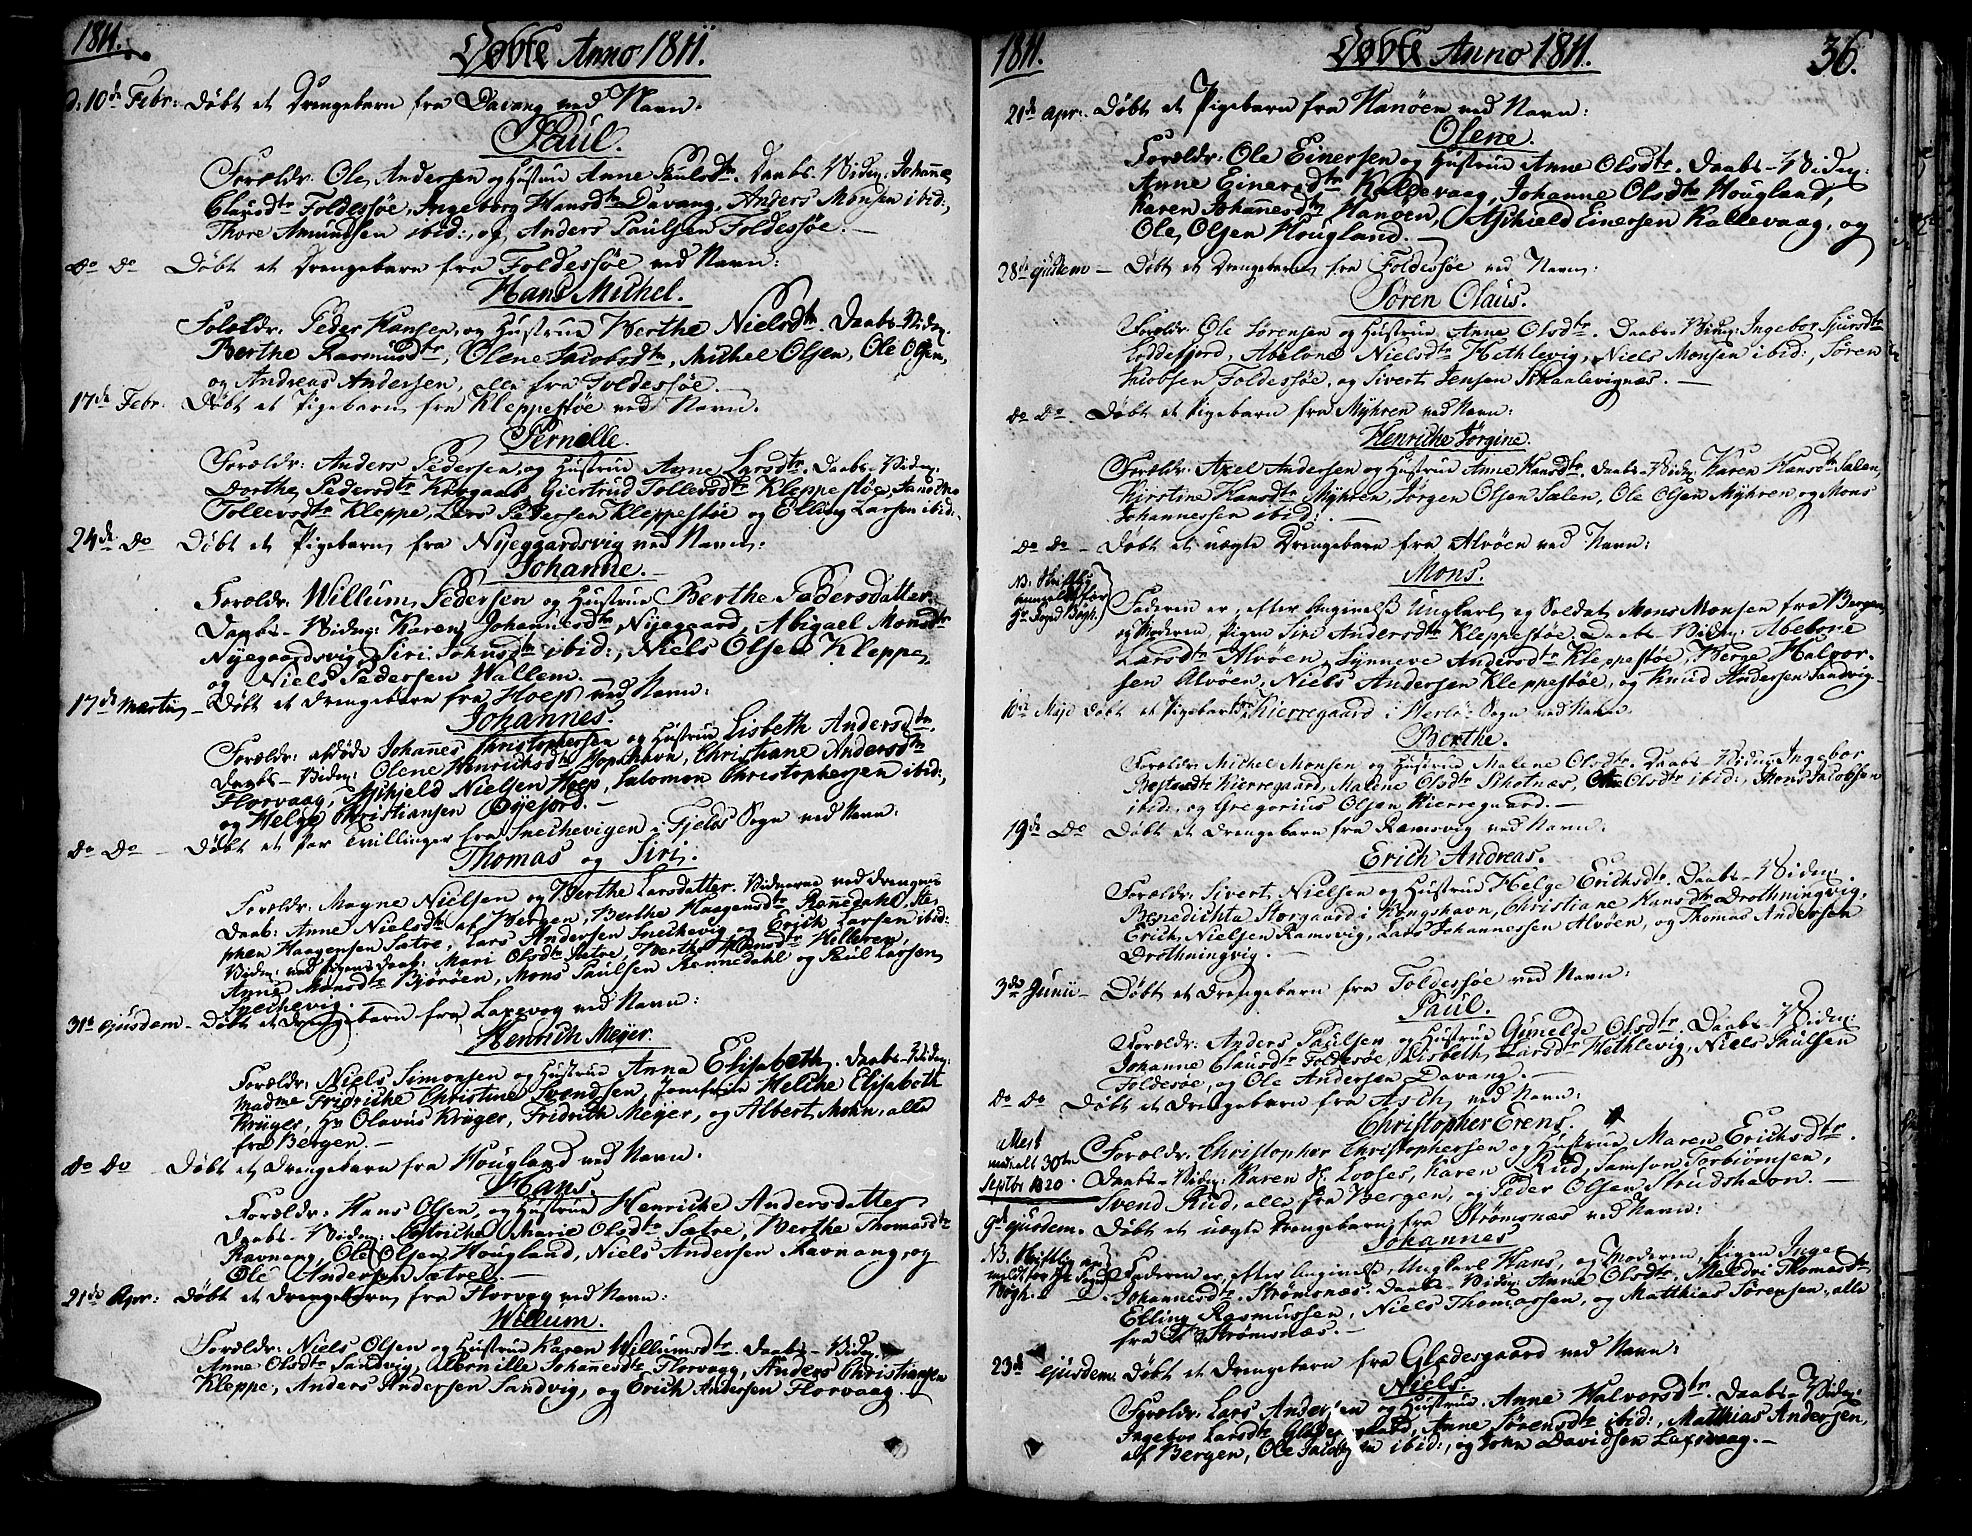 1811.
Døbte Anno 1811.
d: 10de Febr: Døbt et Drengebarn fra Davang ved Navn:
Paul.
Forældr: Ole Andersen og Hustrue Anne Paulsdtr. Daabs-Vidn: Johanne
Clausdtr Foldessøe, Ingeborg Hansdtr Davang, Anders Monsen ibid:,
Thore Amundsen ibid:, og Anders Paulsen Foldessøe.—
do do Døbt et Drengebarn fra Foldessøe ved Navn:
Hans Michel.
Forældr: Peder Hansen og Hustrue Berthe Nielsdtr. Daabs-Vidn:
Berthe Rasmusdtr, Olene Jacobsdtr, Michel Olsen, Ole Olsen,
og Andreas Andersen, alle fra Foldessøe.—
17de Febr. Døbt et Pigebarn fra Kleppestøe ved Navn:
Pernelle.
Forældr: Anders Pedersen og Hustrue Anne Larsdtr. Daabs-Vidn:
Dorthe Pedersdtr Giertrud Tollevsdtr Kleppestøe,
Tollevsdtr Kleppe, Lars Pedersen Kleppestøe og Elling Larsen ibid:
24de do Døbt et Pigebarn fra Nyegaardsvig ved Navn:
Johanne.—
Forældr: Willum Pedersen og Hustrue Berthe Pedersdatter.
Daabs-Vidn: Karen Johannesdtr Nyegaard, Abigael Monsdtr
Nyegaardsvig, Siri Johnsdtr ibid:, Niels Olsen Kleppe,
og Niels Pedersen Wallem.—
17de Martii — Døbt et Drengebarn fra Hoep ved Navn:
Johannes.
Forældr: afdøde Johannes Christophersen og Hustrue Lisbeth Andersdtr.
Daabs-Vidn: Olene Henrichsdtr Christiane Andersdtr
Florvaag, Aschield Nielsen Hoep, Salomon Christophersen ibid:,
og Helge Christiansen Øyejord.—
do do — Døbt et Par Tvillinger fra Snechevigen i Fjelds Sogn ved Navn:
Thomas og Siri.
Forældr: Magne Nielsen og Berthe Larsdatter. Vidnerne ved Drengens
Daab: Anne Nielsdtr af Bergen, Berthe Haagensdtr Rønnedahl, Ste-
phen Haagensen Sætre, Lars Andersen Snechevig og Erich Larsen ibid:
Vidn: ved Pigens Daab: Mari Olsdtr Sætre, Berthe Monsdtr Hilleren,
Anne Monsdtr Bjørøen, Mons Paulsen Rønnedahl og Paul Larsen
Snechevig.
31te ejusdem — Døbt et Drengebarn fra Laxevog ved Navn:
Henrich Meyer.
Forældr: Niels Simonsen og Hustrue Anna Elisabeth. Daabs-Vidn:
Madme Fridriche Christine Svendsen, Jomfrue Helche Elisabeth
Krüger, Hr Olavus Krüger, Fridrich Meyer, og Albert Mohn, alle
fra Bergen.—
do do — Døbt et Drengebarn fra Hougland ved Navn:
Hans.
Forældr: Hans Olsen og Hustrue Henriche Andersdatter
Daabs-Vidn: Marie Olsdtr Sætre, Berthe Thomasdtr
Ravnang, Ole Olsen Hougland, Niels Andersen Ravnang, og
Ole Andersen Sætre.—
21de Apr: Døbt et Drengebarn fra Florvog ved Navn:
Willum.
Forældr: Niels Olsen og Hustrue Karen Willumsdtr. Daabs-Vidn:
Anne Olsdtr Sandvig, Pernille Johannesdtr Florvaag, Anders Christiansen
Kleppe, Anders Andersen Sandvig, og Erich Andersen Florvaag.—
1811.
Døbte Anno 1811.
36.
21de Apr: Døbt et Pigebarn fra Hanøen ved Navn:
Olene.
Forældr: Ole Einersen og Hustrue Anne Olsdtr. Daabs-Vidn:
Anne Einersdtr Kallevaag, Johanne Olsdtr Hougland,
Karen Johannesdtr Hanøen, Aschield Einersen Kallevaag, og
Ole Olsen Hougland.—
28de ejusdem — Døbt et Drengebarn fra Foldessøe ved Navn:
Søren Claus.
Forældr: Ole Sørensen og Hustrue Anne Olsdtr. Daabs-Vidn: Ingebor Sjursdtr
Loddefjord, Abelone Nielsdtr Hethlevig, Niels Monsen ibid:, Søren
Jacobsen Foldessøe, og Sivert Jensen Skaalevignæs.—
do do. Døbt et Pigebarn fra Myhren ved Navn:
Henriche Jørgine.
Forældr: Axel Andersen og Hustrue Anne Hansdtr. Daabs-Vidn: Karen Hansdtr Salen,
Kirstine Hansdtr Myhren, Jørgen Olsen Salen, Ole Olsen Myhren, og Mons
Johannessen ibid:.—
do do — Døbt et uægte Drengebarn fra Alvøen ved Navn:
Mons.
NB. Skriftlig
anmeldt for
Hr Fogd Bøgh.
Faderen er, efter Angivelse Ungkarl og Soldat Mons Monsen fra Bergen,
og Moderen, Pigen Siri Andersdtr Kleppestøe. Daabs-Vidn: Abelone
Larsdtr Alvøen, Synneve Andersdtr Kleppestøe, Berge Halvor-
sen Alvøen, Niels Andersen Kleppestøe, og Knud Andersen Sandvig.
Maji Døbt et Pigebarn fra Kierregaard i Herløe Sogn ved Navn:
Berthe.
Forældr: Michel Monsen og Hustrue Malene Olsdtr. Daabs-Vidn: Ingebor
Kierregaard, Malene Olsdtr Skotnæs, Olsdtr ibid:, Mons Jacobsen
ibid:, og Gregorius Olsen Kierregaard.—
19de do Døbt et Drengebarn fra Ramsvig ved Navn:
Erich Andreas.
Forældr: Sivert Nielsen og Hustrue Helge Erichsdtr. Daabs-Vidn:
Benedichta Storgaard i Kongshavn, Christiane Hansdtr Drothningvig,
Erich Nielsen Ramsvig, Lars Johannessen Alvøen, og Thomas Andersen
Drothningvig.—
3de Junii — Døbt et Drengebarn fra Foldessøe ved Navn:
Paul.
Forældr: Anders Paulsen og Hustrue Gunelde Olsdtr. Daabs-Vidn:
Johanne Clausdtr Foldesøe, Lisbeth Larsdtr Hethlevig, Niels Paulsen
Foldesøe, og Ole Andersen Davang.—
do do Døbt et Drengebarn fra Asch ved Navn:
Christopher Erens.
Attest
meddelt 30te
Septbr 1820.
Forældr: Christopher Christophersen og Hustrue Maren Erichsdtr.
Daabs-Vidn: Karen H. Looses, Karen Rud, Samson Torbiörnsen,
Svend Rud, alle fra Bergen, og Peder Olsen Strudshavn.—
9de ejusdem. Døbt et uægte Drengebarn fra Strømsnæs ved Navn:
Johannes
NB. Skriftlig an-
meldt for Hr Fogd
Bøgh.
Faderen er, efter Angivelse, Ungkarl Hans, og Moderen, Pigen Inger
Johannesdtr Strømsnæs. Daabs-Vidn: Anne Olsdtr, Thomasdtr
Elling Rasmussen, Niels Thomassen, og Matthias Sørensen, alle
fra Strømsnæs.—
23de ejusdem. Døbt et Drengebarn fra Gladesgaard ved Navn:
Niels.
Forældr: Lars Andersen og Hustrue Anne Halvorsdtr. Daabs-Vidn:
Ingebor Larsdtr Anne Sørensdtr ibid:, Matthias Andersen,
af Bergen, Ole ibid:, og John Davidsen Laxevaag.—